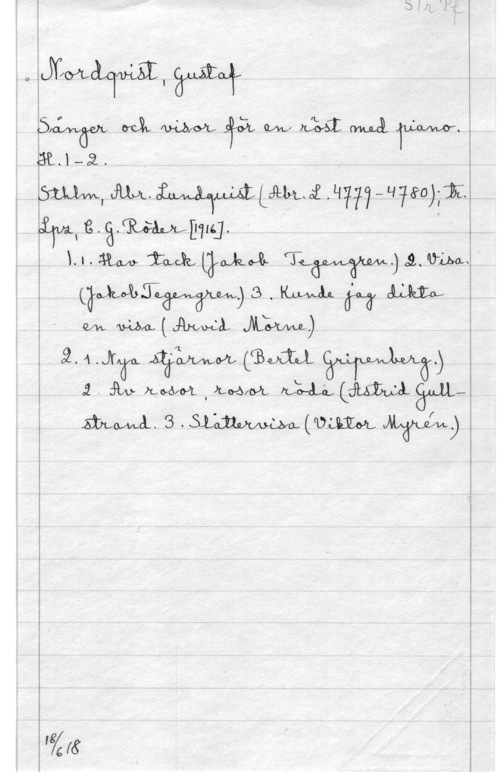 S1r Pf
Nordqvist, Gustaf
Sånger och visor för en röst med piano.
H. 1-2.
Sthlm, Abr. Lundquist (Abr. L. 4779-4780); tr.
Lpz, C. G. Röder [1916].
1. 1. Hav tack (Jakob Tegengren.) 2. Visa.
(Jakob Tegengren.) 3. Kunde jag dikta
en visa (Arvid Mörne.)
2. 1. Nya stjärnor (Bertel Gripenberg.)
2. Av rosor, rosor röda (Astrid Gull-
strand. 3. Slåttervisa (Viktor Myrén.)
18/6 18